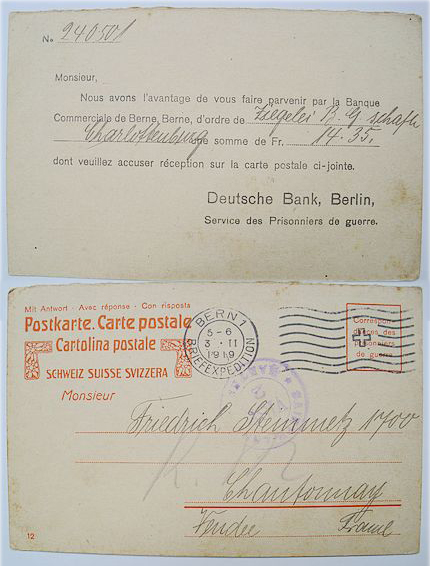 No 240501
Monsieur,
Nous avons l'avantage de vous faire parvenir par la Banque
Commerciale de Berne, Berne, d'ordre de Ziegelei B. G. schafte
Charlottenburg une somme de Fr. 14.35.
dont veuillez accuser réception sur la carte postale ci-jointe.
Deutsche Bank, Berlin,
Service des Prisonniers de guerre.
Mit Antwort - Avec réponse - Con risposta
Postkarte. Carte postale
Cartolina postale
SCHWEIZ SUISSE SVIZZERA
BERN 1
5-6
3 · II
1919
BRIEFEXPEDITION
Correspon-
dances des
prisonniers
de guerre
Monsieur
Friedrich Steinmetz 1700
Chantonnay
Vendee France
12